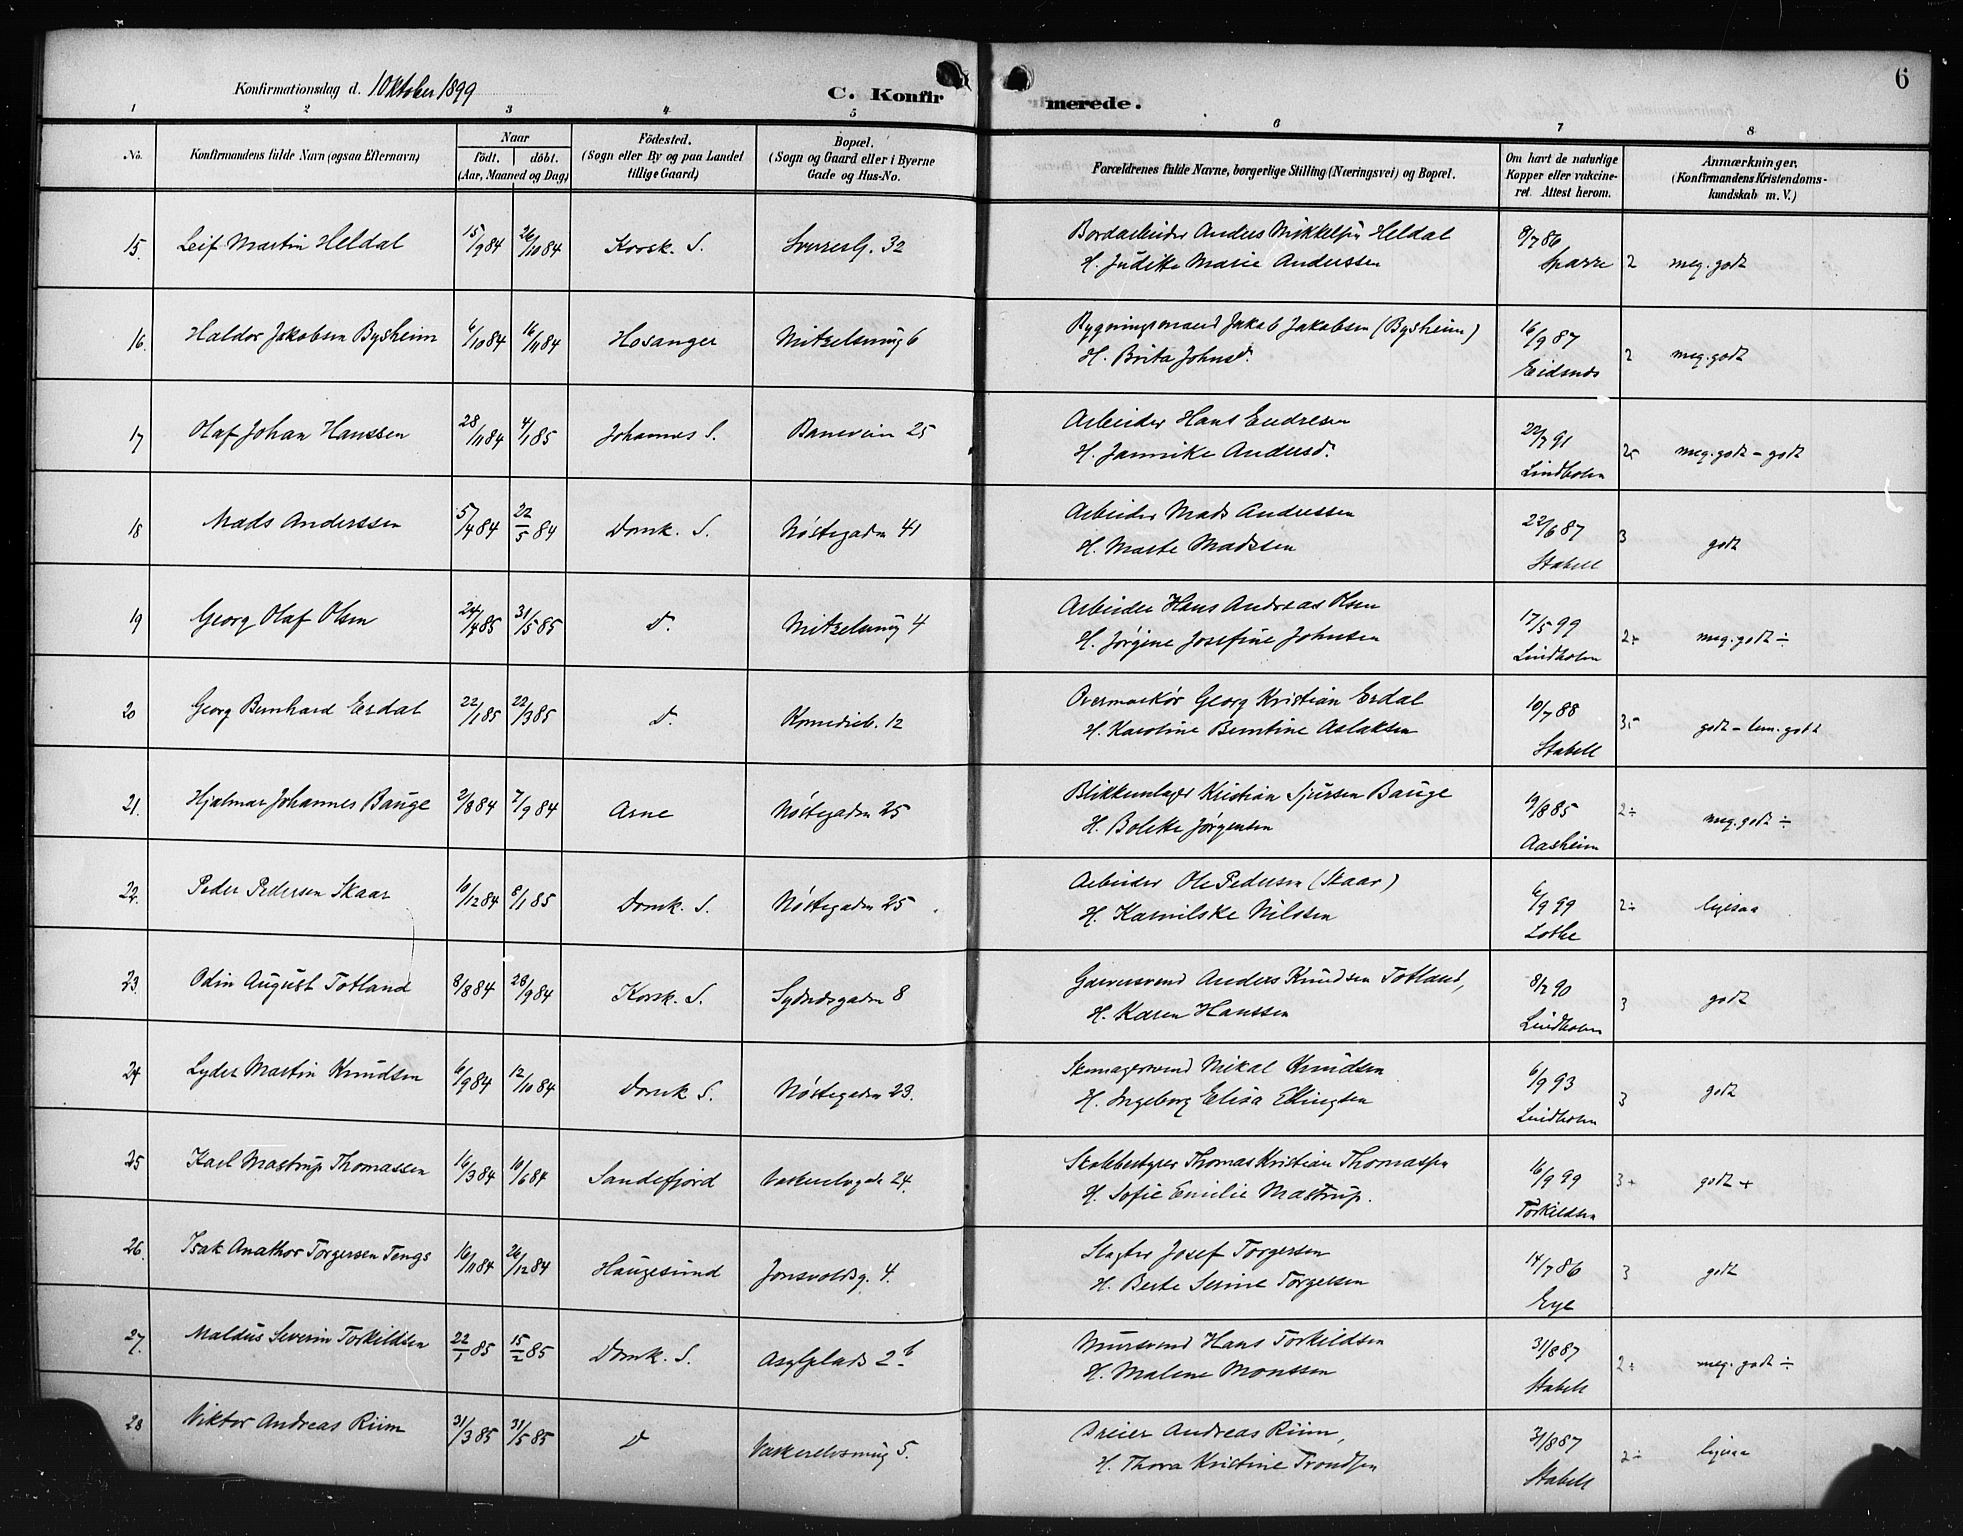 6
Konfirmationsdag d. 1 Oktober 1899
C. Konfirmerede.
1 2 3 4 5 6 7 8
No. Konfirmandens fulde Navn (ogsaa Efternavn) Naar födt. döbt. (Aar, Maaned og Dag) Födested. (Sogn eller By og paa Landet tillige Gaard) Bopæl. (Sogn og Gaard eller i Byerne Gade og Hus-No. Forældrenes fulde Navne, borgerlige Stilling (Næringsvei) og Bopæl. Om havt de naturlige Kopper eller vakcineret. Attest herom. Anmærkninger, (Konfirmandens Kristendomskundskab m. V.)
15. Leif Martin Heldal 15/9 84 26/10 84 Korsk. S. Sverresg. 32 Bordarbeider Anders Mikkelsen Heldal 8/7 86
H. Judithe Marie Anderssen Sparre 2 meg. godt
16. Haldor Jakobsen Bysheim 6/10 84 16/11 84 Hosanger Mitzelsmug 6 Bygningsmand Jakob Jakobsen (Bysheim) 16/9 87
H. Brita Johnsd. Eidsnes 2 meg. godt
17 Olaf Johan Hanssen 28/11 84 4/1 85 Johannes S. Baneveien 25 Arbeider Hans Endresen 22/7 91
H. Jannike Andersd. Lindholm 2- meg. godt - godt
18 Mads Anderssen 5/4 84 22/5 84 Domk. S. Nöstegaden 41 Arbeider Mads Andressen 22/6 87
H. Marte Madssen Stabell 3 godt
19 Georg Olaf Olsen 24/4 85 31/5 85 D. Mitzelsmug 4 Arbeider Hans Andreas Olsen 17/5 99
H. Jørgine Josefine Johnsen Lindholm 2÷ meg. godt ÷
20 Georg Bernhard Erdal 22/1 85 22/3 85 D. Komedieb. 12 Overmarkør Georg Kristian Erdal 10/7 88
H. Karoline Berntine Aslaksen Stabell 3- godt - tem. godt
21. Hjalmar Johannes Bauge 2/8 84 7/9 84 Arne Nöstegaden 25 Blikkenslager Kristian Sjursen Bauge 19/8 85
H. Bolette Jørgensen Aasheim 2÷ meg. godt ÷
22. Peder Pedersen Skaar 10/12 84 8/1 85 Domk. S. Nöstegaden 25 Arbeider Ole Pedersen (Skaar) 6/9 99
H. Karnilske Nilssen Lothe 2÷ ligesaa
23. Odin August Totland 8/8 84 28/9 84 Korsk. S. Sydnæsgaden 8 Garversvend Anders Knudsen Totland, 8/7 90
H. Karen Hanssen Lindholm 3 godt
24 Lyder Martin Knudsen 6/9 84 12/10 84 Domk S. Nöstegaden 23. Skomagersvend Mikal Knudsen 6/9 93
H. Ingeborg Elisa Ellingsen Lindholm 3 godt
25 Karl Mastrup Thomassen 16/3 84 10/6 84 Sandefjord Vaskerelvgade 24. Skolebestyrer Thomas Kristian Thomassen 16/9 99
H. Sofie Emilie Mastrup. Torkildsen 3+ godt +
26. Isak Anathor Torgersen Tengs 16/11 84 26/12 84 Haugesund Jonsvoldsg. 4. Slagter Josef Torgersen 14/7 86
H. Berte Serine Torgersen Eye 3 godt
27. Maldus Severin Torkildsen 22/1 85 15/2 85 Domk. S. Asylplads 2 b Mursvend Hans Torkildsen 31/8 87
H. Malene Monssen Stabell 2÷ meg. godt ÷
28 Viktor Andreas Riim 31/3 85 31/5 85 D Vaskerelvsmug 5. Dreier Andreas Riim, 31/8 87
H. Thora Kristine Trondsen Stabell 2÷ ligesaa